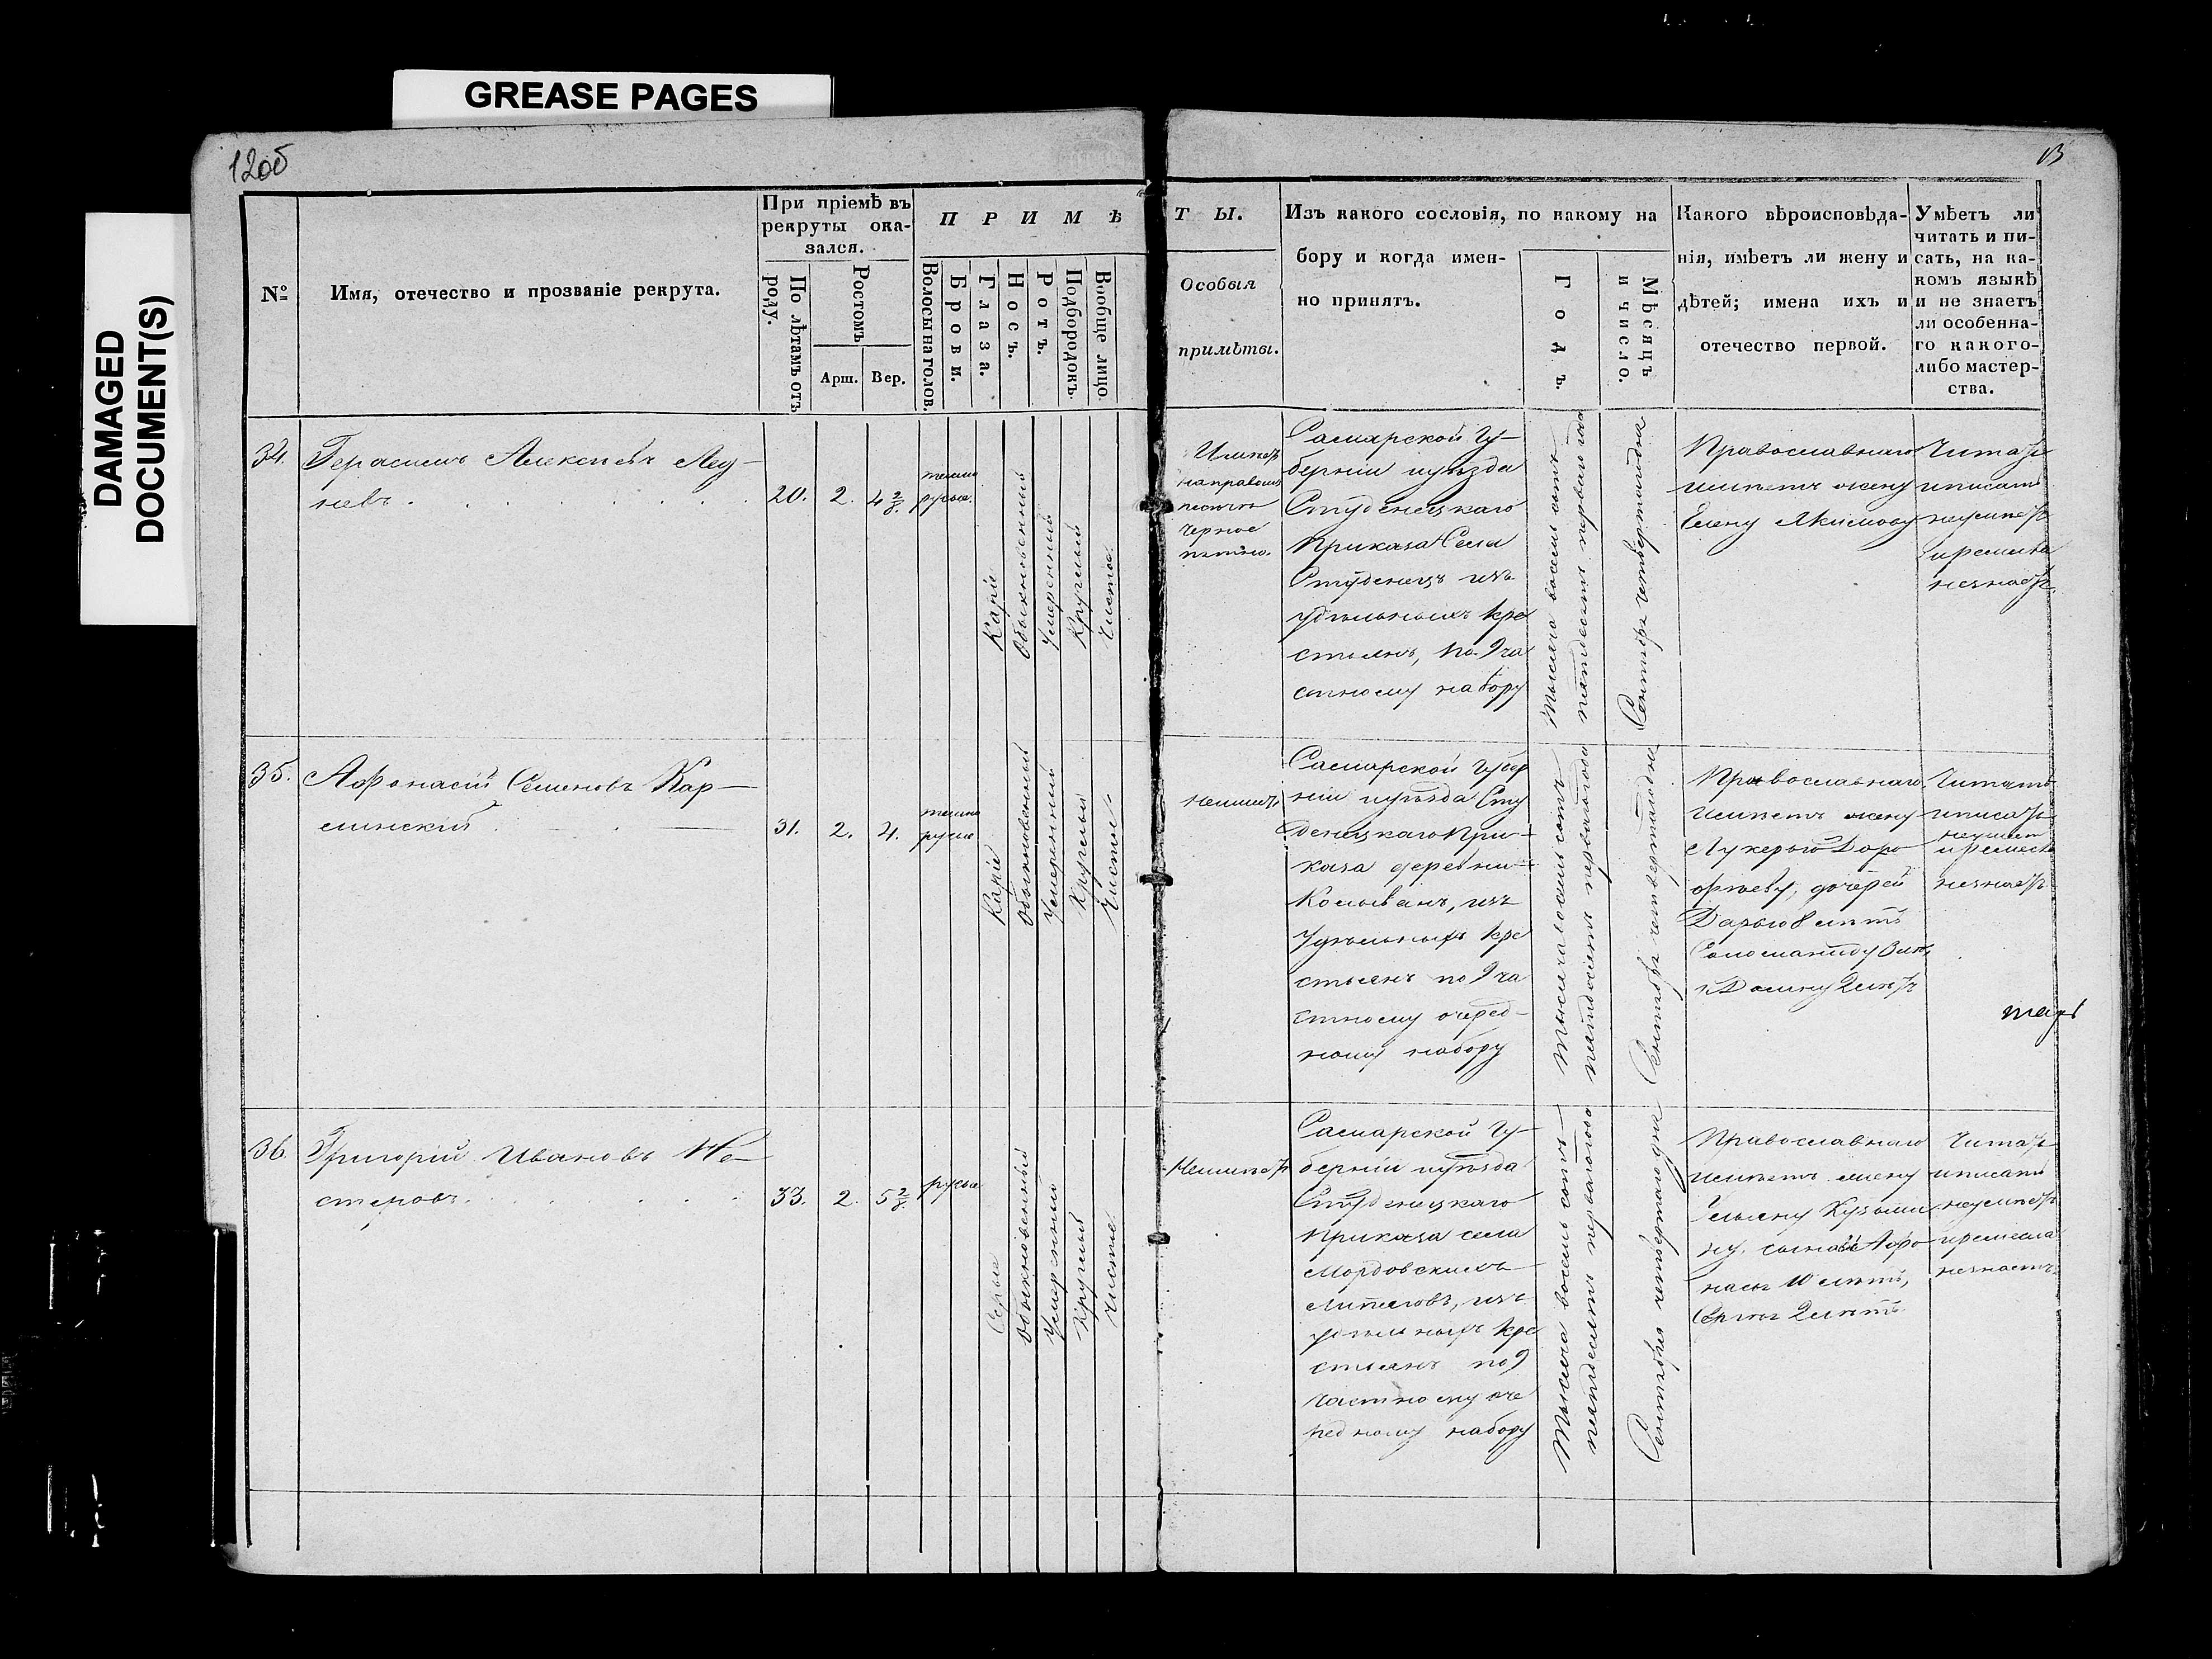 GREASE PAGES
DAMAGED
DOCUMENT(S)
12об
13
№
Имя, отечество и прозваніе рекрута.
При пріемѣ въ
рекруты ока-
зался.
По лѣтамъ отъ
роду.
Ростомъ
Арш.
Вер.
П Р И М Ѣ
Волосы на голов.
Брови.
Глаза.
Носъ.
Ротъ.
Подбородокъ
Вообще лицо
Т Ы.
Особыя
примѣты.
Изъ какого сословія, по какому на
бору и когда имен-
но принятъ.
Годъ.
Мѣсяцъ
и число.
Какого вѣроисповѣда-
нія, имѣетъ ли жену и
дѣтей; имена ихъ и
отечество первой.
Умѣетъ ли
читать и пи-
сать, на ка-
комъ языкѣ
и не знаетъ
ли особенна-
го какого-
либо мастер-
ства.
34.
Герасимъ Алексѣевъ Лед-
невъ
20.
2.
4 2/8.
темно
русые.
Каріе
Обыкновенный
Умеренный
Круглый
Чистое.
Имѣетъ
на правом
черное
пятно.
Самарской Гу-
берніи и уѣзда
Студенецкаго
Приказа Села
Студенецъ изъ
удѣльныхъ кре
стьянъ, по 9 ча
стному набору
Тысяча восемь сотъ
пятьдесятъ перваго года
Сентябр четвертаго дня
Православнаго
имѣетъ жену
Елену Якимову
Читать
и писать
неумѣетъ
и ремесла
незнаетъ.
35.
Афонасій Семеновъ Кар-
слинскій
31.
2.
4.
темно
русые
Каріе
Обыкновенный
Умеренный
Круглый
Чистое
неимѣетъ
Самарской Губер
ніи и уѣзда Сту
денецкаго При-
каза деревни
Колывань, изъ
Удѣльныхъ кре
стьянъ по 9 ча
стному очеред-
ному набору
Тысяча восемь сотъ
пятьдесятъ перваго года
Сентябр четвертаго дня
Православнаго
имѣетъ жену
Лукерью Доро
фѣеву, дочерей
Дарью 8 лѣтъ
Соломаниду 3 лѣт,
и Домну 2 лѣтъ
Читать
и писать
неумеет
и ремесла
незнаетъ
36.
Григорій Ивановъ Не-
стеровъ.
33.
2.
5 2/8.
русые
Серые
Обыкновенный
Умеренный
Круглый
Чистое.
Неимѣетъ
Самарской Гу-
берніи и уѣзда
Студенецкаго
Приказа села
Мордовскихъ
Липеговъ, изъ
удѣльныхъ кре
стьянъ по 9
частному оче
редному набору
Тысяча восемь сотъ
пятьдесятъ перваго года
Сентября четвертаго дня
Православнаго
имѣетъ жену
Ульяну Кузьми
ну. сыновей Афо
насья 10 лѣтъ,
Сергѣя 2 лѣтъ
Читать
и писать
неумѣетъ
и ремесла
незнаетъ.